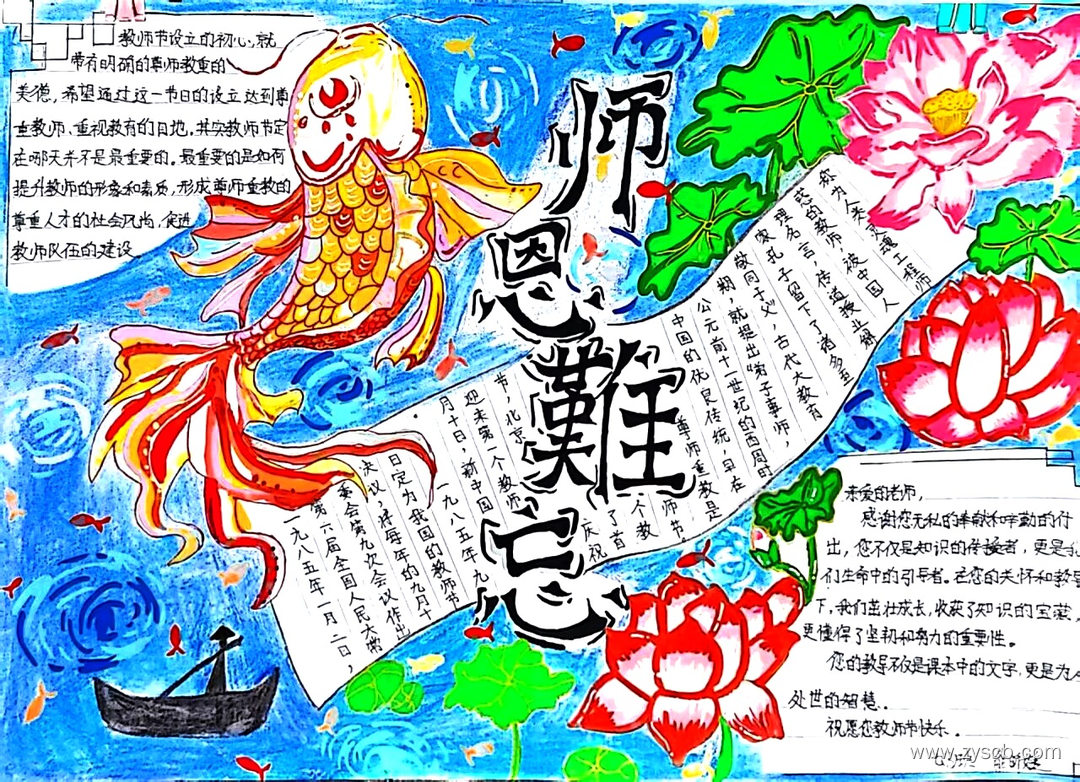 教师节设立的初心,就
带有明确的尊师教重的
美德,希望通过这一节日的设立达到尊
重教师、重视教育的目地,其实教师节定
在哪天并不是最重要的。最重要的是如何
提升教师的形象和素质,形成尊师重教的
尊重人才的社会风尚,促进
教师队伍的建设
师恩難忘
称为人类灵魂工程师
惑的教师,被中国人
理名言,传道授业解
家孔子留下了诸多至
敬同于父”,古代大教育
期,就提出“弟子事师,
公元前十一世纪的西周时
中国的优良传统,早在
尊师重教是
个教师节,
了首
庆祝
节,北京
迎来第一个教师
月十日,新中国
一九八五年九
日定为我国的教师节
决议,将每年的九月十
委会第九次会议作出
第六届全国人民大常
一九八五年一月二日,
亲爱的老师,
感谢您无私的奉献和辛勤的付
出,您不仅是知识的传授者,更是
们生命中的引导者。在您的关怀和教导
下,我们茁壮成长,收获了知识的宝藏,
更懂得了坚韧和努力的重要性。
您的教导不仅是课本中的文字,更是为人
处世的智慧.
祝愿您教师节快乐.
www.zyscb.com